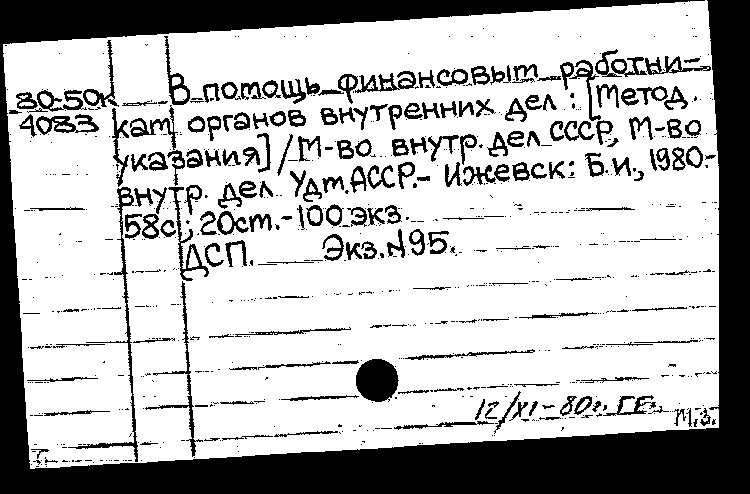 80-50к В помощь финансовыт работни-
4083 кат органов внутренних дел : [Метод.
указания] / М-во внутр. дел СССР, М-во
внутр. дел Удт. АССР. - Ижевск: Б.и., 1980.-
58с.; 20ст. - 100 экз.
ДСП. Экз. №95.
12/XI - 80г. ГБ.
М.З.